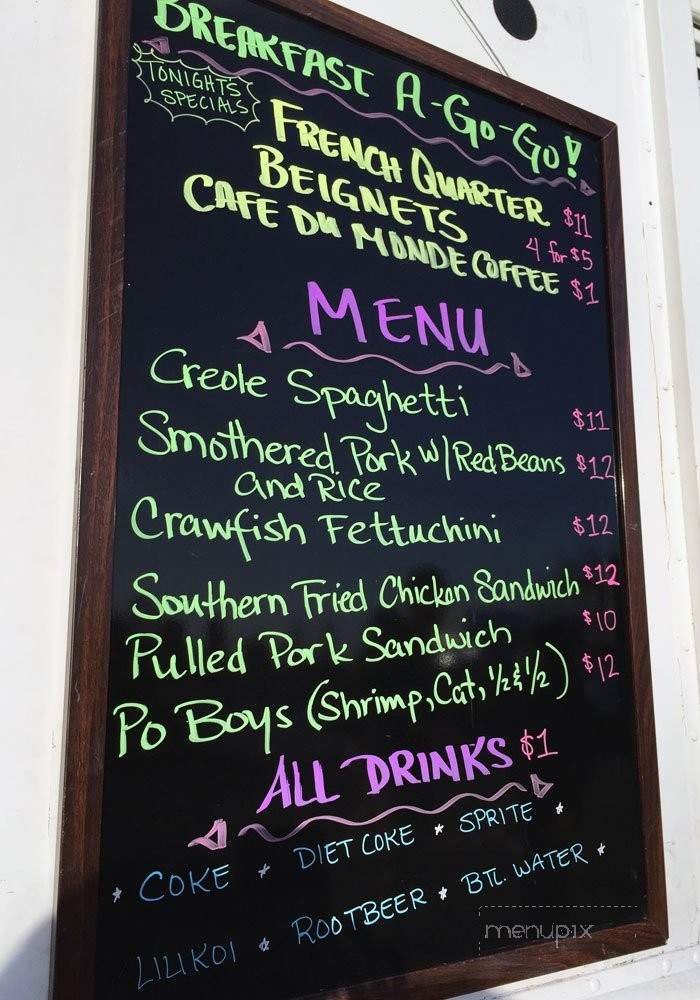 BREAKFAST A-GO-GO!
TONIGHT'S
SPECIALS
FRENCH QUARTER $11
BEIGNETS 4 for $5
CAFE DU MONDE COFFEE $1
MENU
Creole Spaghetti $11
Smothered Pork w/ Red Beans $12
and Rice
Crawfish Fettuchini $12
Southern Fried Chicken Sandwich $12
Pulled Pork Sandwich $10
Po Boys (Shrimp, Cat, 1/2 & 1/2) $12
ALL DRINKS $1
* COKE * DIET COKE * SPRITE *
LILIKOI * ROOTBEER * BTL. WATER *
menupix